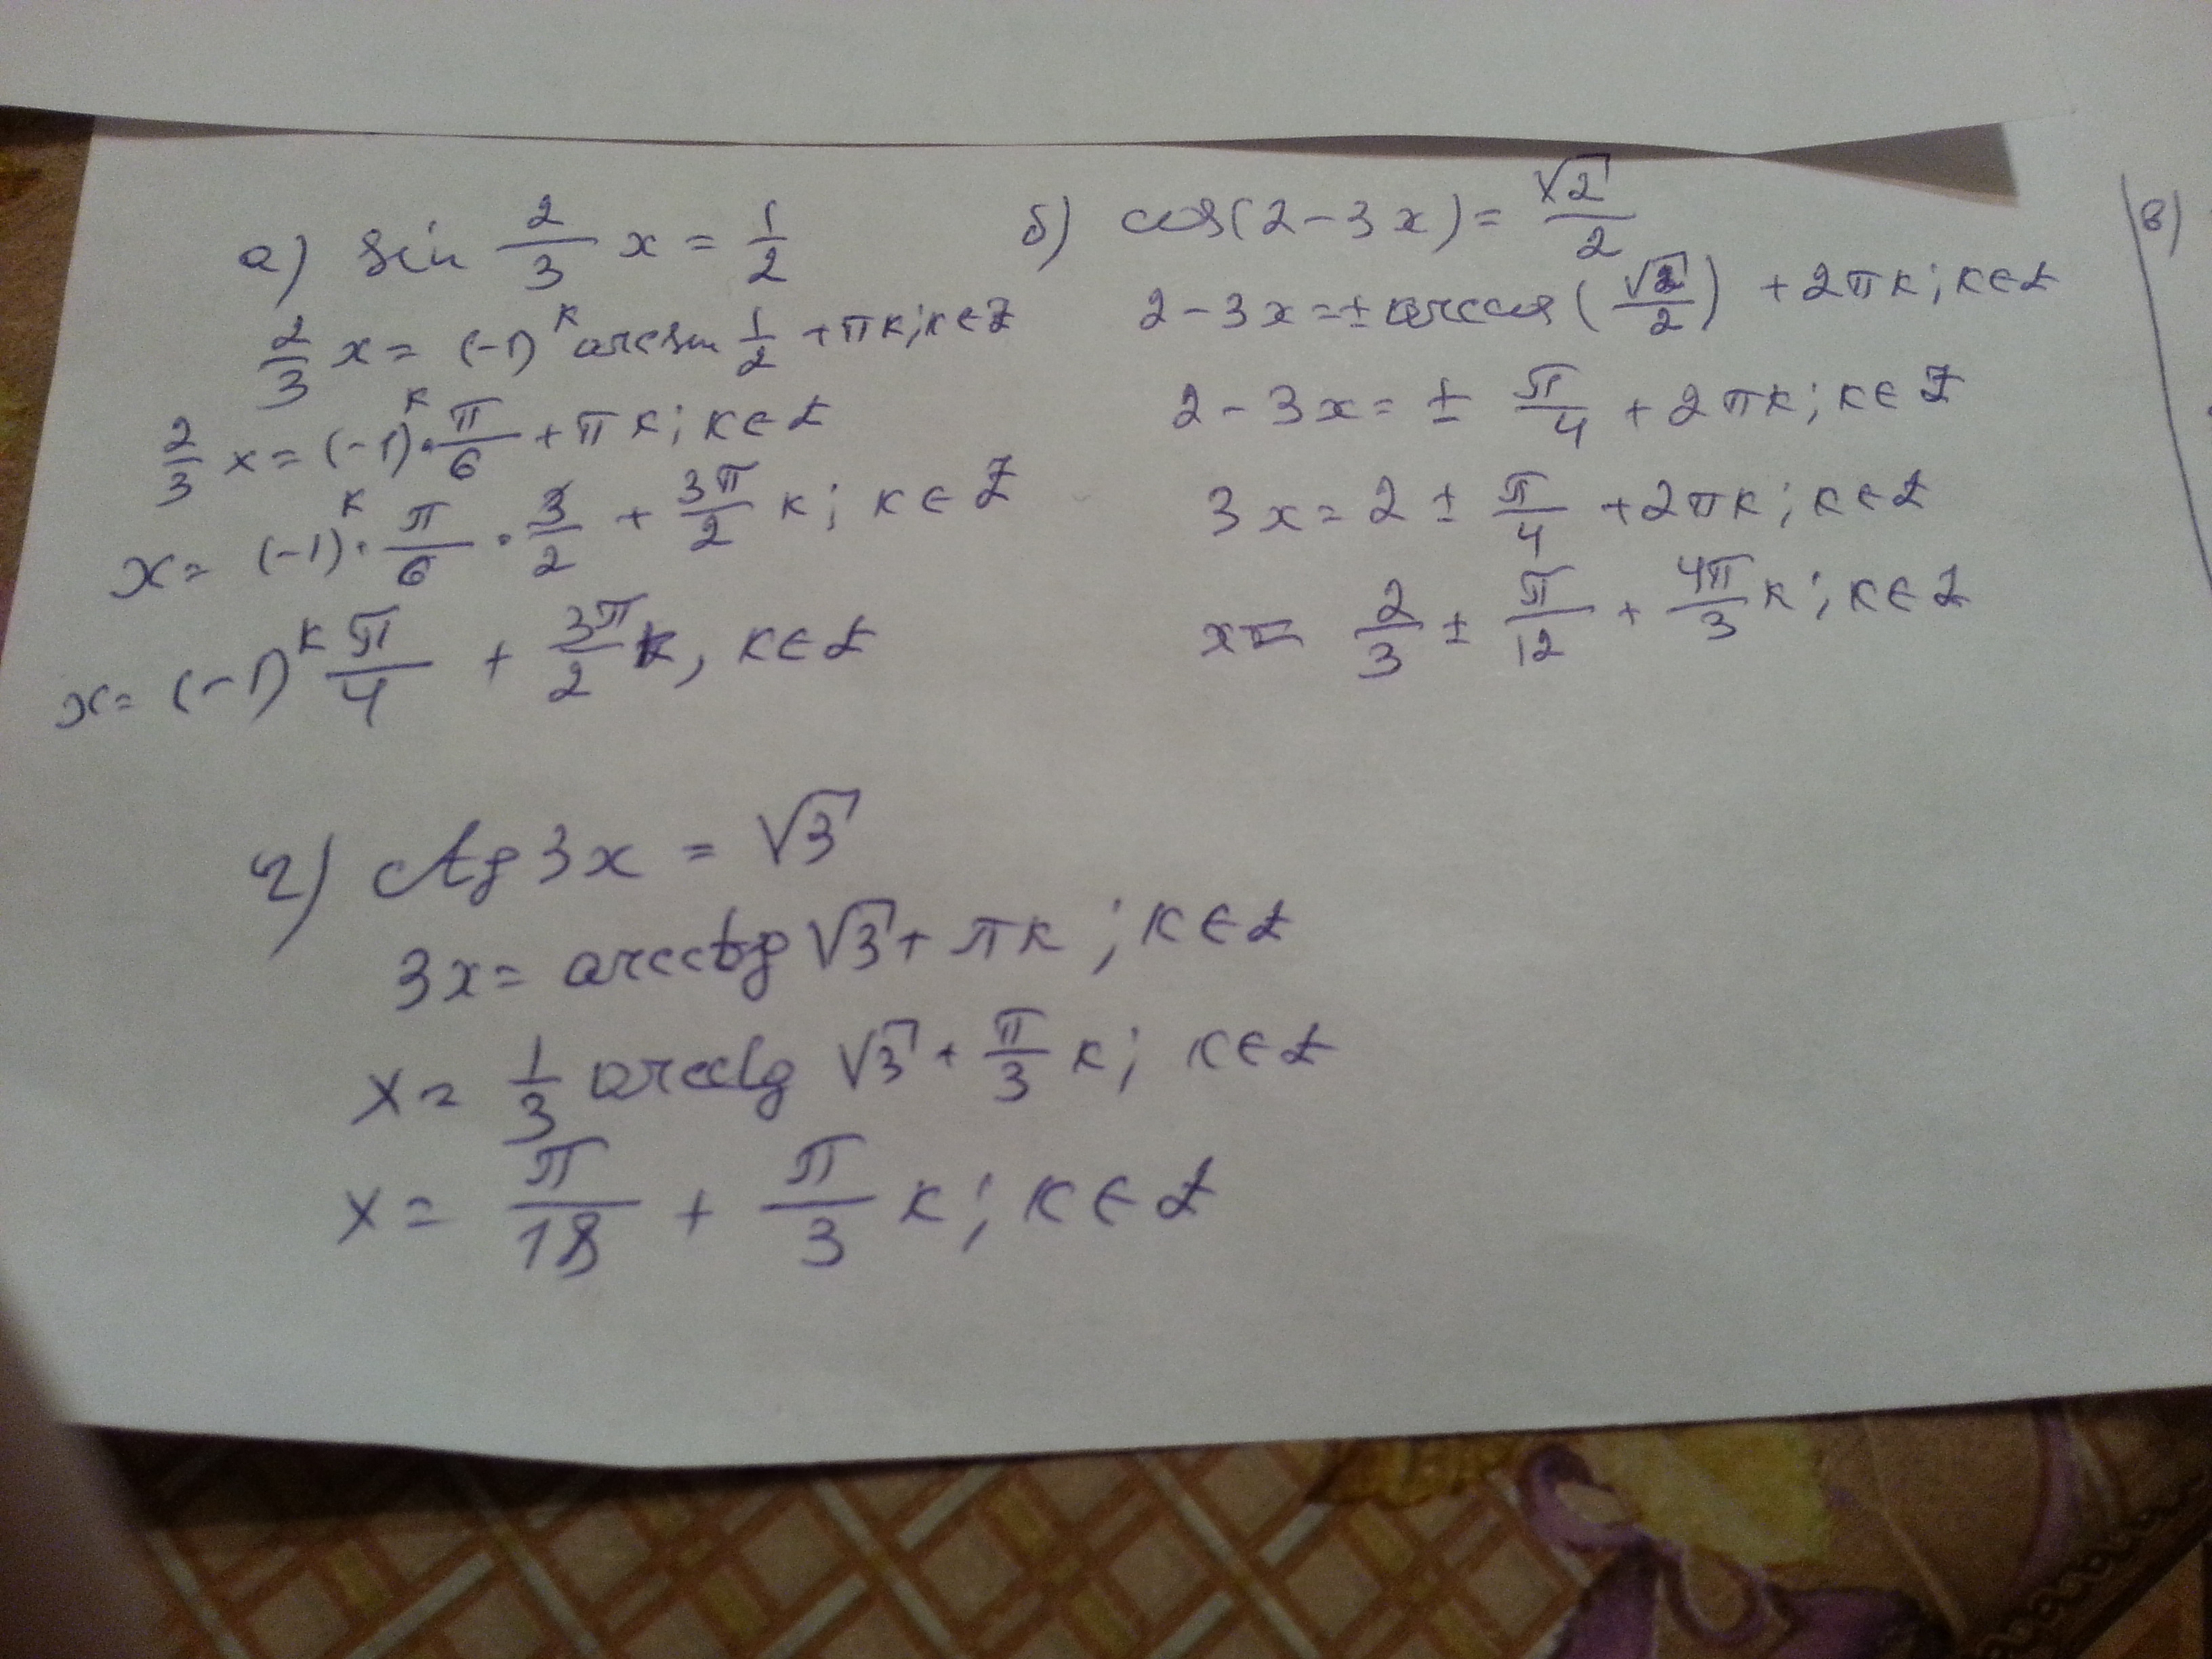 а) sin 2/3 x = 1/2
2/3 x = (-1)^k arcsin 1/2 + πk; k∈Z
2/3 x = (-1)^k · π/6 + πk; k∈Z
x = (-1)^k · π/6 · 3/2 + 3π/2 k; k∈Z
x = (-1)^k π/4 + 3π/2 k, k∈Z
б) cos(2-3x) = √2/2
2-3x = ± arccos (√2/2) + 2πk; k∈Z
2-3x = ± π/4 + 2πk; k∈Z
3x = 2 ± π/4 + 2πk; k∈Z
x = 2/3 ± π/12 + 4π/3 k; k∈Z
в)
г) ctg 3x = √3
3x = arcctg √3 + πk; k∈Z
x = 1/3 arcctg √3 + π/3 k; k∈Z
x = π/18 + π/3 k; k∈Z